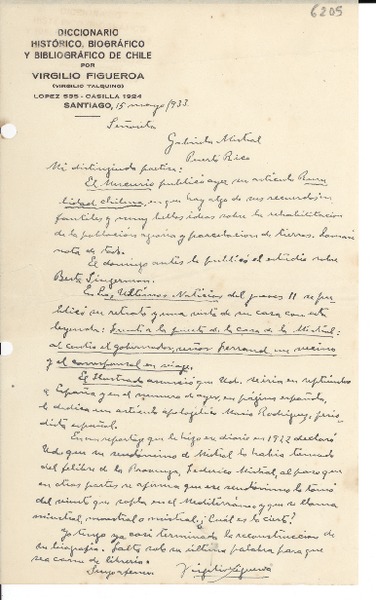 6205
DICCIONARIO
HISTÓRICO, BIOGRÁFICO
Y BIBLIOGRÁFICO DE CHILE
POR
VIRGILIO FIGUEROA
(VIRGILIO TALQUINO)
LOPEZ 535 - CASILLA 1924
SANTIAGO, 15 mayo/933.
Señorita
Gabriela Mistral
Puerto Rico
Mi distinguida
El Mercurio publicó ayer su artículo Rura
lidad chilena, en que hay algo de sus recuerdos in
fantiles y muy bellas ideas sobre la rehabilitacion
de la poblacion agraria y parcelacion de tierras.
nota de todo.
El domingo antes le publicó el estudio sobre
Berta Singerman.
En Las Ultimas Noticias del jueves 11 se pu
blicó su retrato y una vista de su casa con esta
leyenda: Frente a la puerta de la casa de la Mistral:
al centro el gobernador, señor un vecino
y el corresponsal en viaje.
El Ilustrado anunció que Ud. iria en septiembre
a España y en el numero de ayer, en página española,
le dedica un artículo apologético Mario Rodriguez, perio
dista español.
En un reportaje que le hizo un diario en 1922 declaró
Ud. que su seudónimo de Mistral lo habia tomado
del felibre de la Provenza, Federico Mistral, al paso que
en otras partes se afirma que ese seudónimo lo tomó
del viento que sopla en el Mediterráneo y que se llama
minstral, maestral o mistral. ¿Cuál es lo cierto?
Yo tengo ya casi terminada la reconstruccion de
su biografía. Falta solo su última palabra para que
sea carne de librería.
Virgilio Figueroa